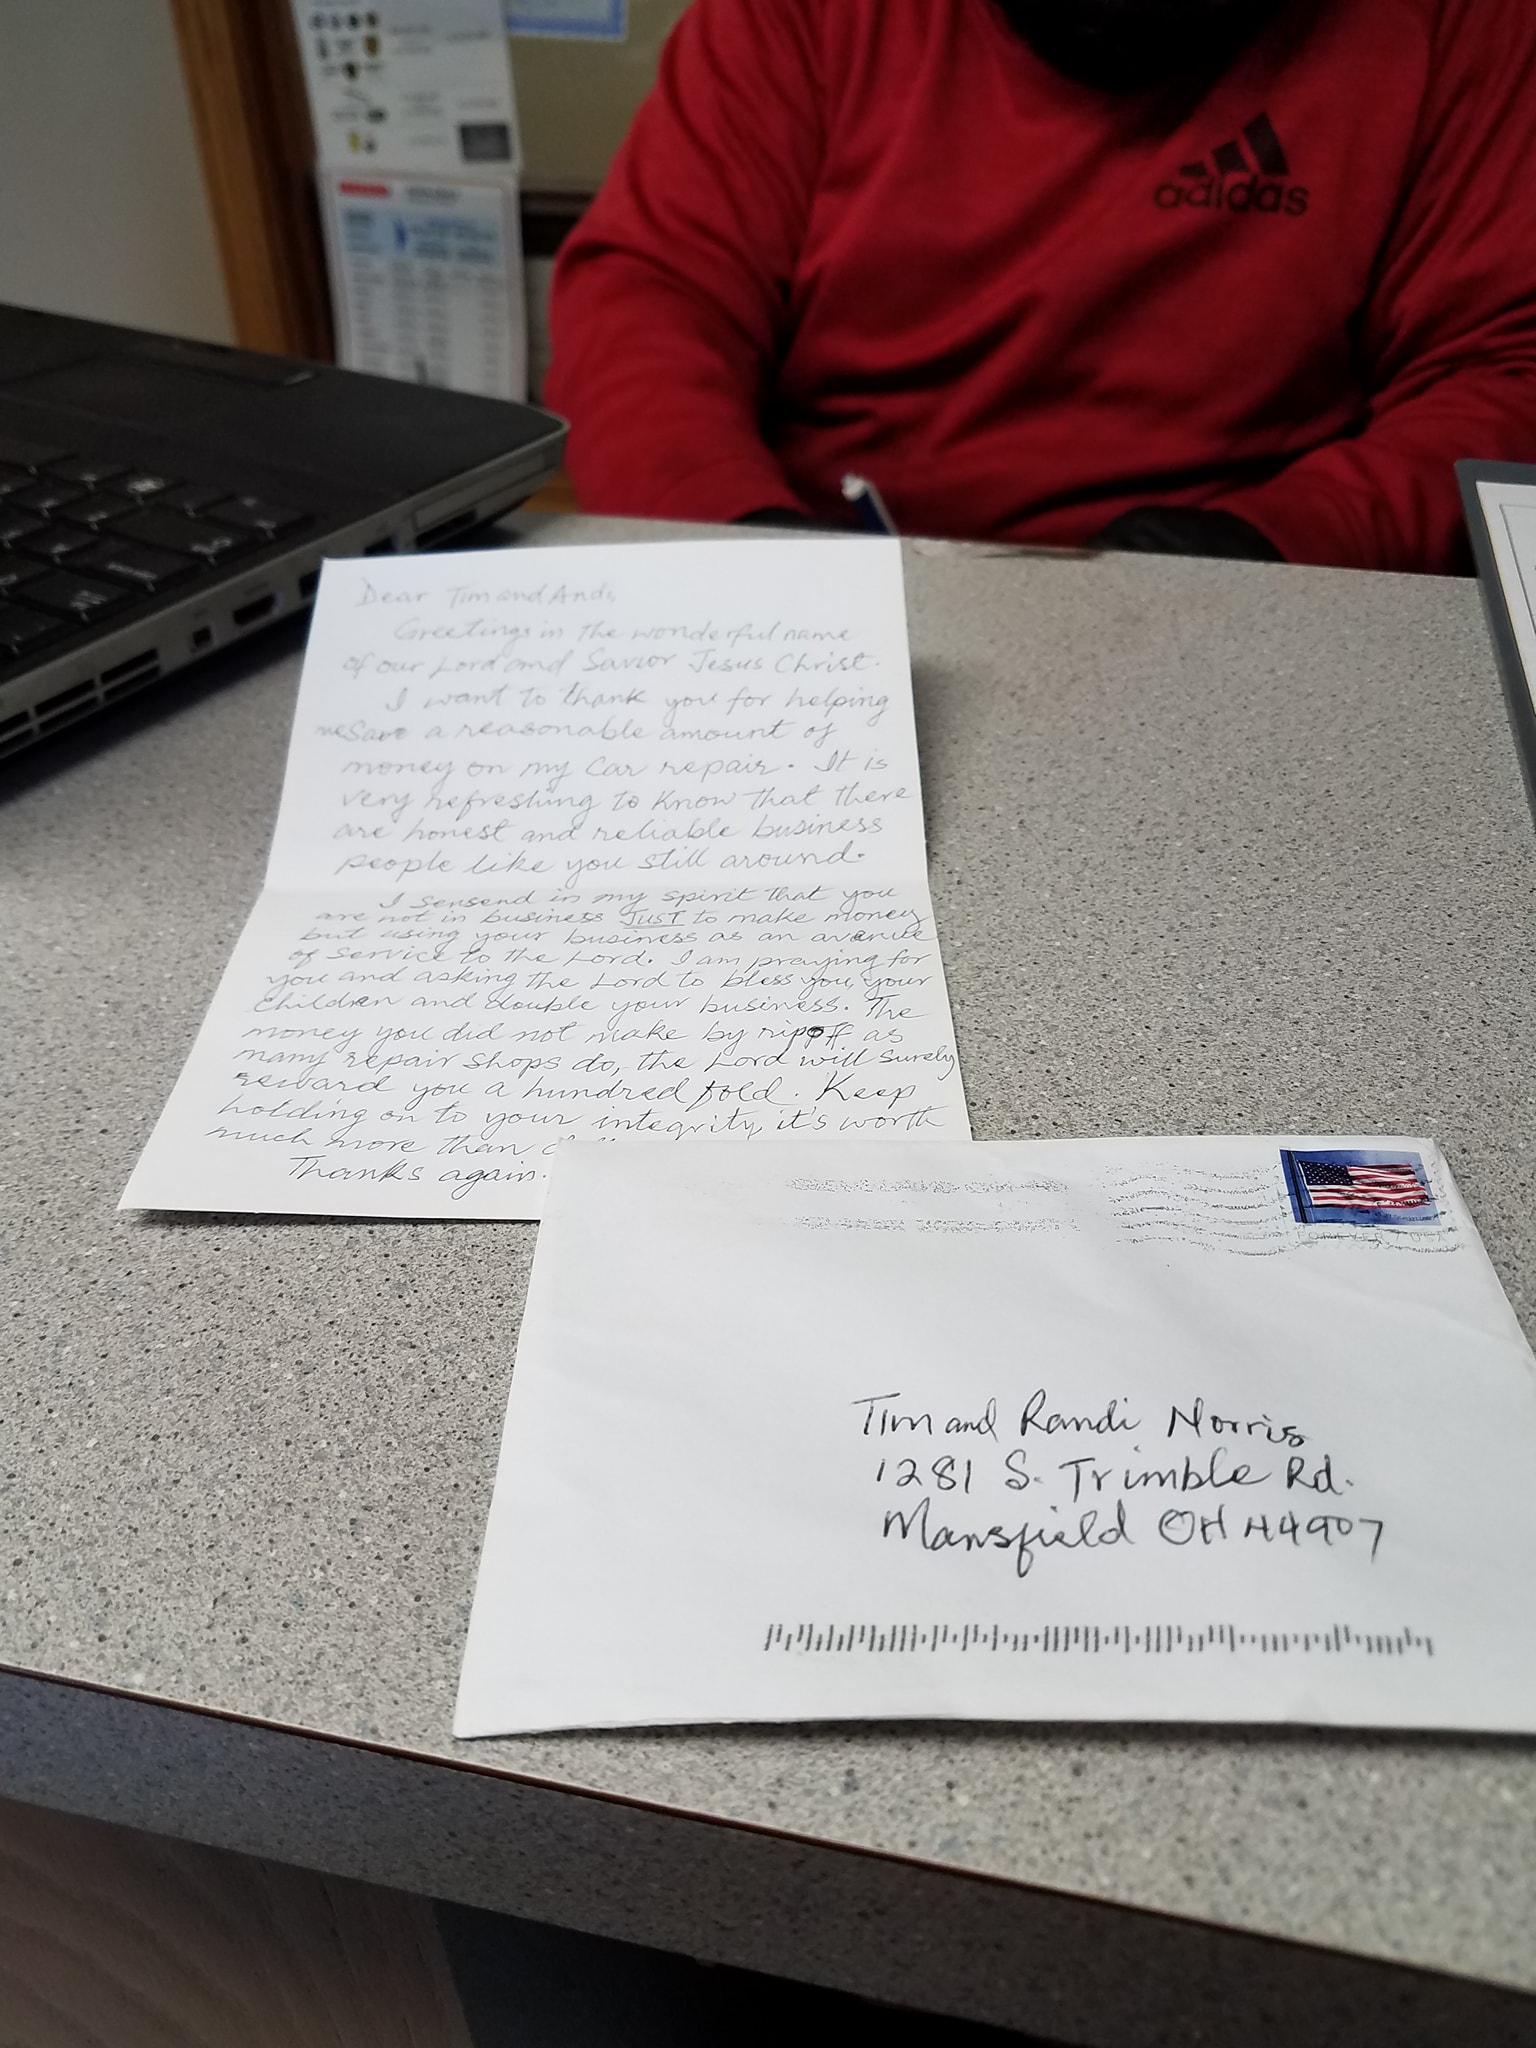 adidas
Dear Tim and Andi,
Greetings in the wonderful name
of our Lord and Savior Jesus Christ.
I want to thank you for helping
me save a reasonable amount of
money on my car repair. It is
very refreshing to know that there
are honest and reliable business
people like you still around.
I sensend in my spirit that you
are not in business JUST to make money
but using your business as an avenue
of service to the Lord. I am praying for
you and asking the Lord to bless you, your
children and double your business. The
money you did not make by ripoff as
many repair shops do, the Lord will surely
reward you a hundred fold. Keep
holding on to your integrity, it's worth
much more than
Thanks again.
FOREVER / USA
Tim and Randi Norris
1281 S. Trimble Rd.
Mansfield OH 44907